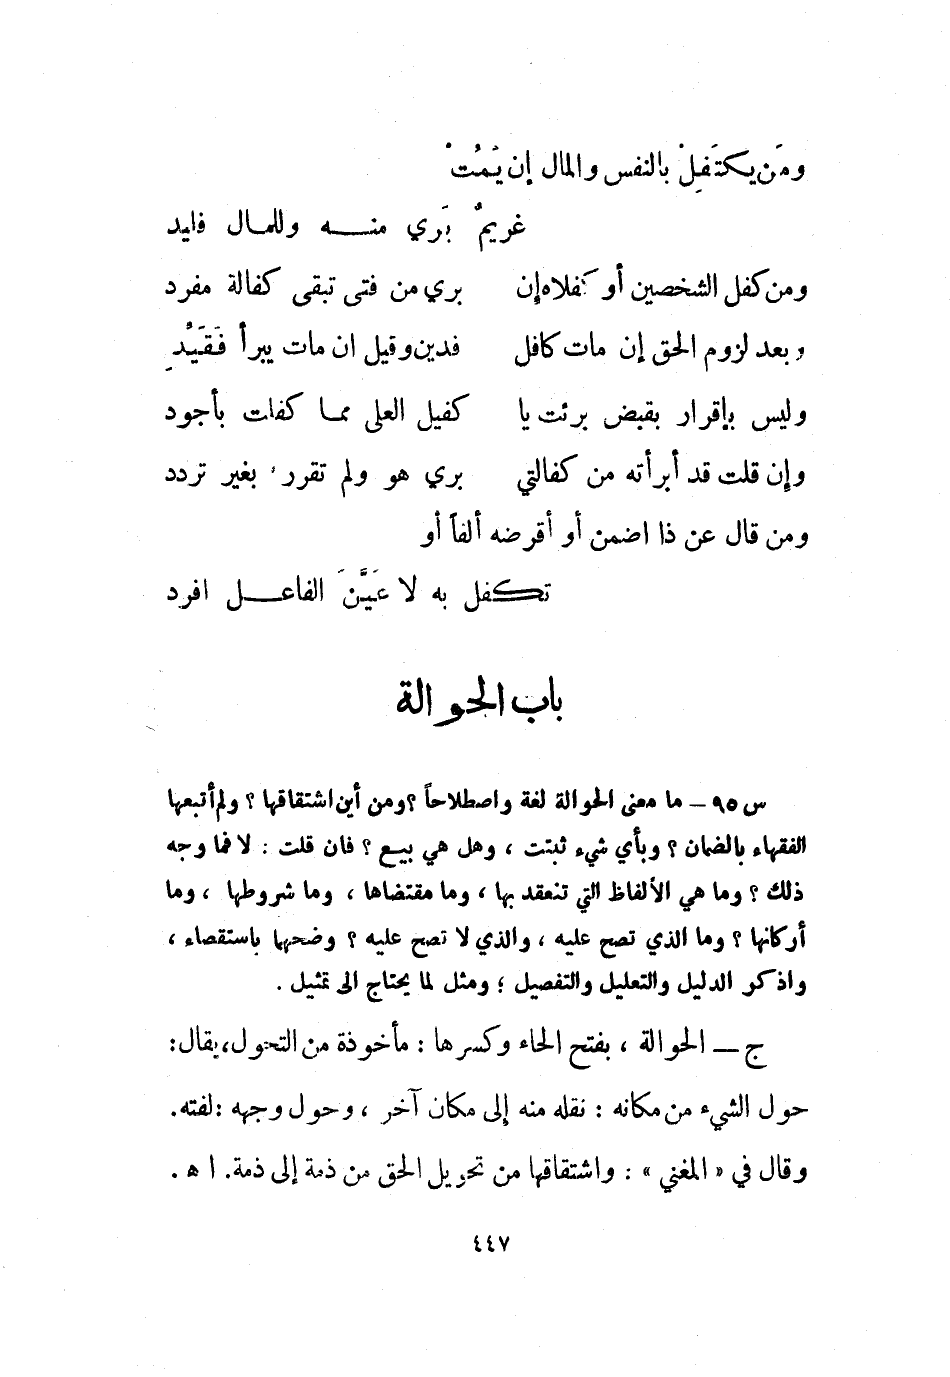 ومَن يكتَفِلْ بالنفس والمال إن يَمُتْ
غريمٌ بَري منـــه وللمـال فايد
ومن كفل الشخصين أو كفلاه إن بري من فتى تبقى كفالة مفرد
وبعد لزوم الحق إن مات كافل فدين وقيل ان مات يبرأ فَقَيِّدْ
وليس بإقرار بقبض برئت يا كفيل العلى ممـا كفلت بأجود
وإن قلت قد أبرأته من كفالتي بري هو ولم تقرر بغير تردد
ومن قال عن ذا اضمن أو أقرضه ألفاً أو
تكفل به لا عَيَّنَ الفاعـــل افرد
باب الحوالة
س ٩٥ – ما معنى الحوالة لغة واصطلاحاً ؟ ومن أين اشتقاقها ؟ ولم أتبعها
الفقهاء بالضمان ؟ وبأي شيء ثبتت ، وهل هي بيع ؟ فان قلت : لا فما وجه
ذلك ؟ وما هي الألفاظ التي تنعقد بها ، وما مقتضاها ، وما شروطها ، وما
أركانها ؟ وما الذي تصح عليه ، والذي لا تصح عليه ؟ وضحها باستقصاء ،
واذكر الدليل والتعليل والتفصيل ؛ ومثل لما يحتاج الى تمثيل .
ج – الحوالة ، بفتح الحاء وكسرها : مأخوذة من التحول، يقال:
حول الشيء من مكانه : نقله منه إلى مكان آخر ، وحول وجهه : لفته.
وقال في « المغني » : واشتقاقها من تحويل الحق من ذمة إلى ذمة. ا ه .
٤٤٧